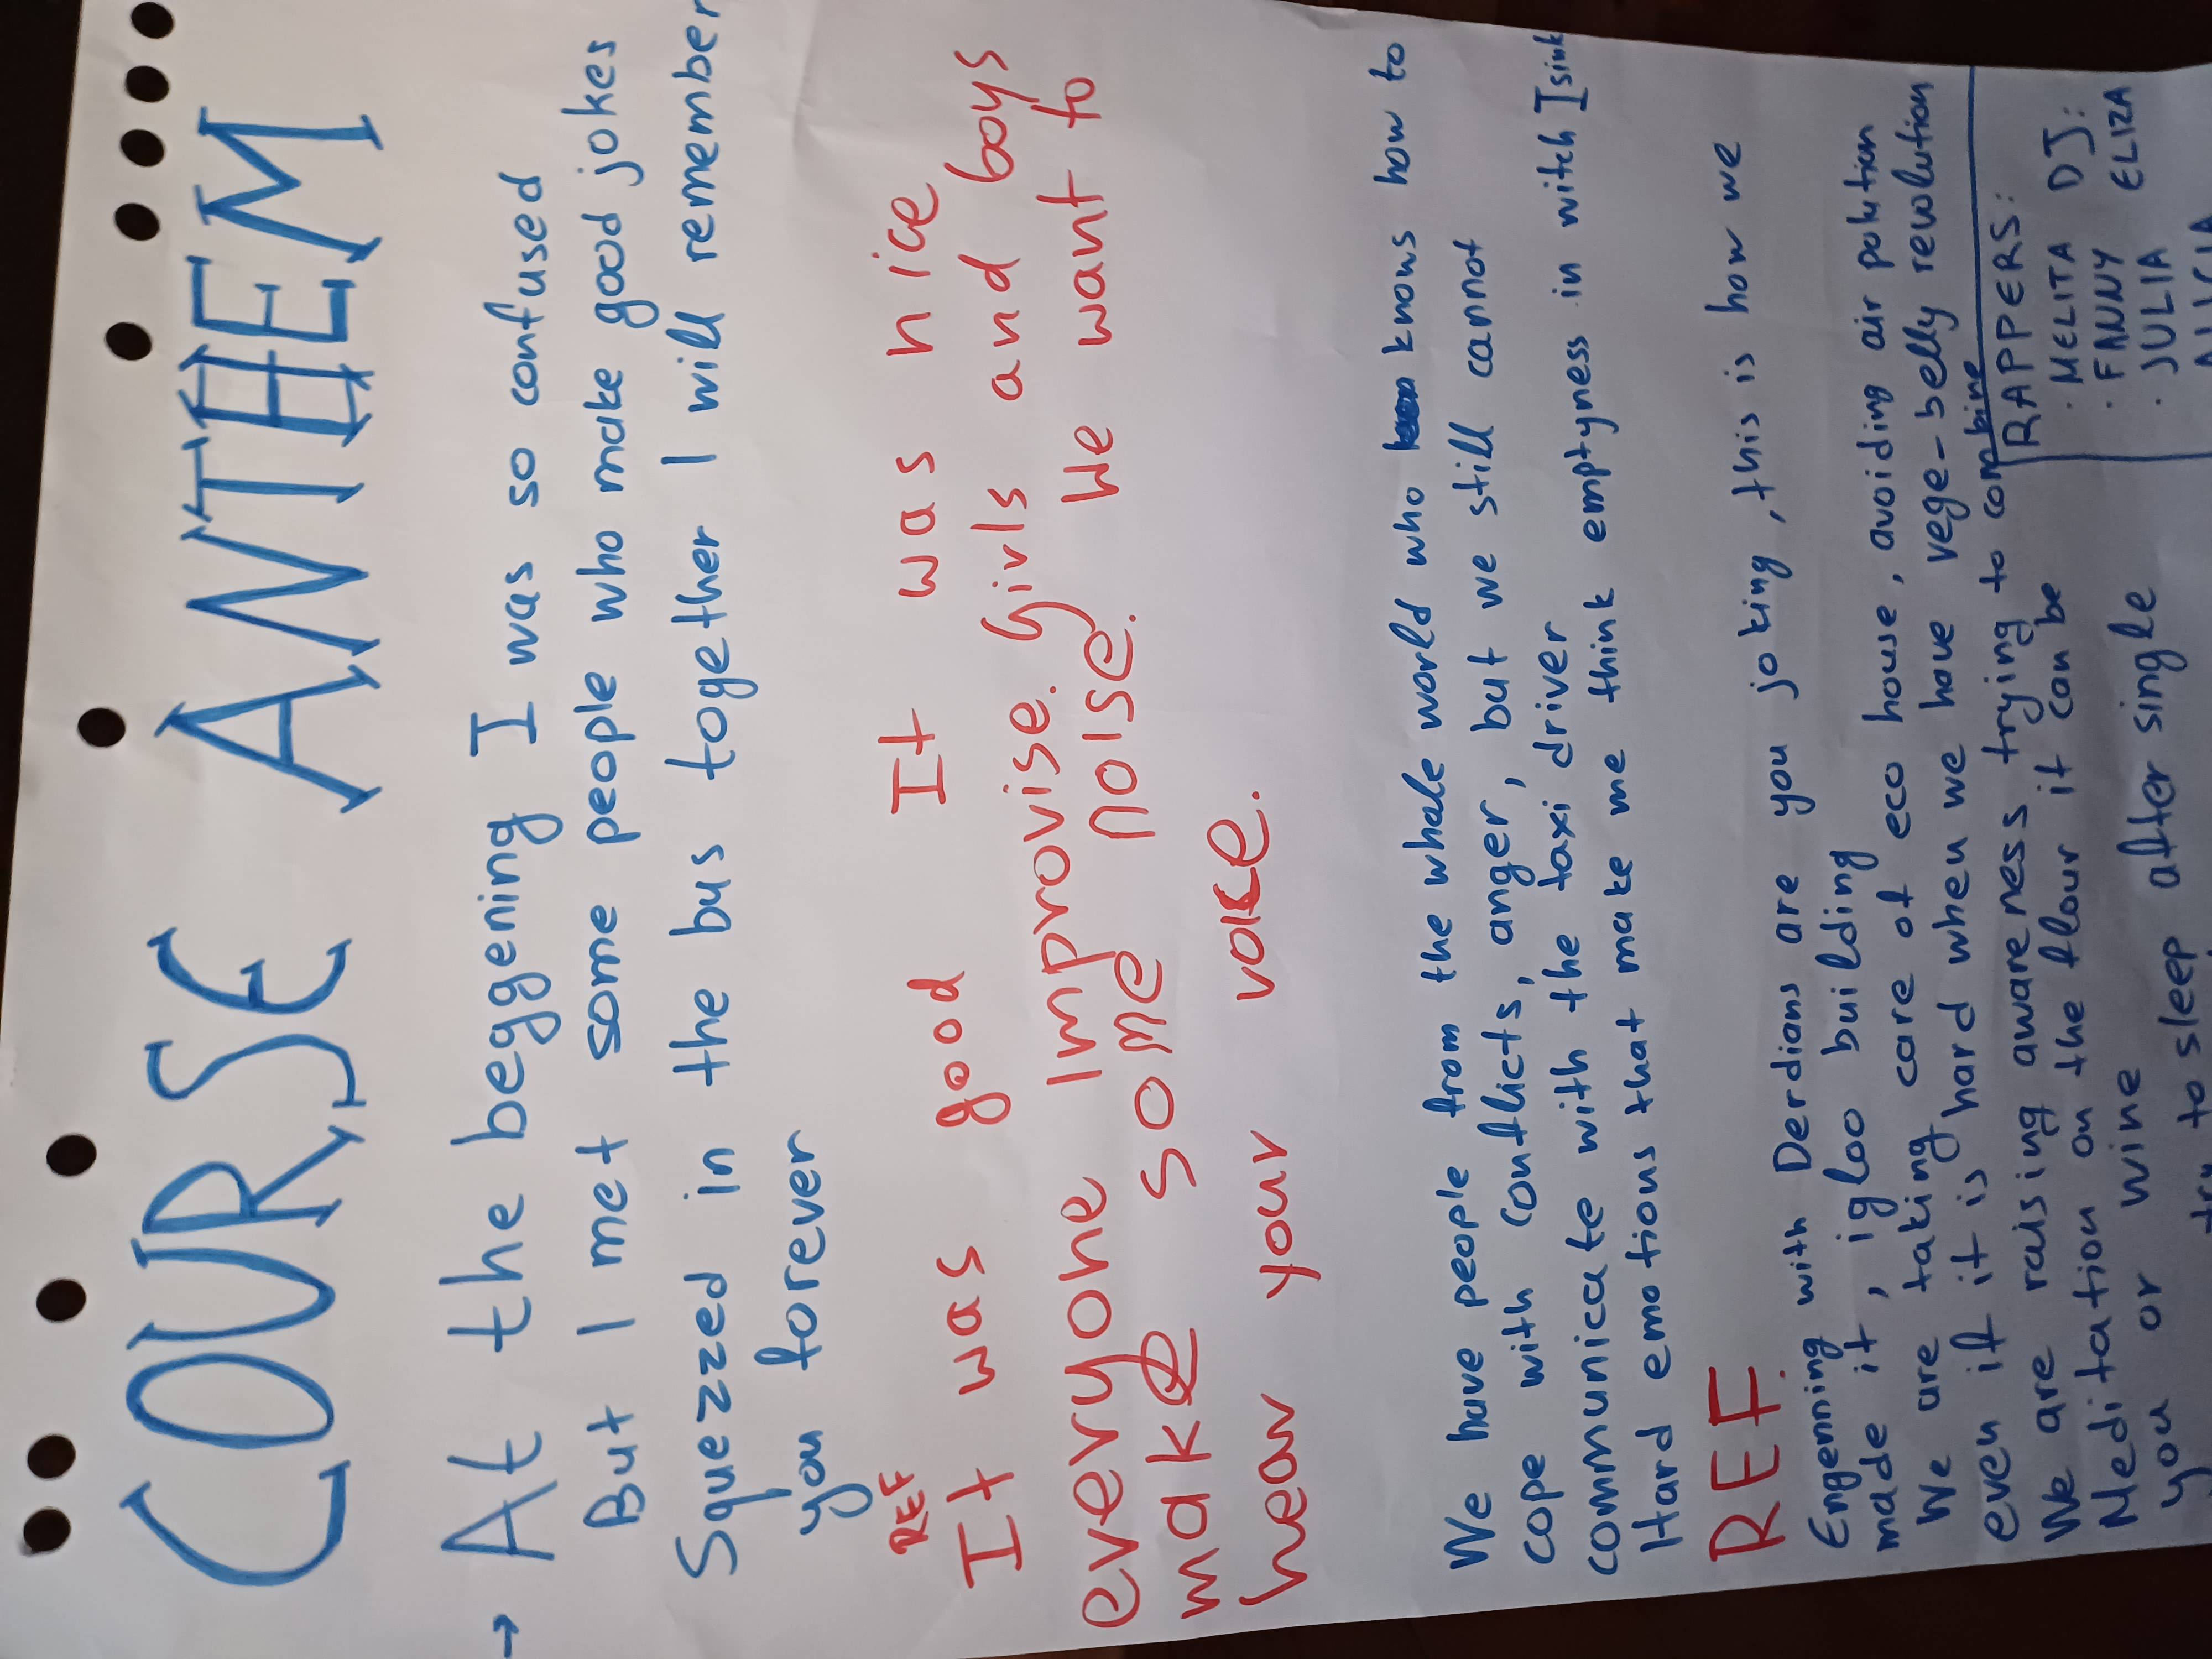 COURSE ANTHEM
→ At the beggening I was so confused
But I met some people who make good jokes
Squezzed in the bus together I will remember
you forever
REF
It was good It was nice
everyone improvise. Girls and boys
make some noise. We want to
hear your voice.
We have people from the whole world who knows how to
cope with conflicts, anger, but we still cannot
communicate with the taxi driver
Hard emotions that make me think emptyness in witch I sink
REF.
Engenning with Derdians are you joking, this is how we
made it, igloo building
We are taking care of eco house, avoiding air polution
even if it is hard when we have vege-belly revolution
We are raising awareness trying to combine
Meditation on the flour it can be
you or wine
try to sleep after single
RAPPERS:
· MELITA DJ:
· FANNY ELIZA
· JULIA